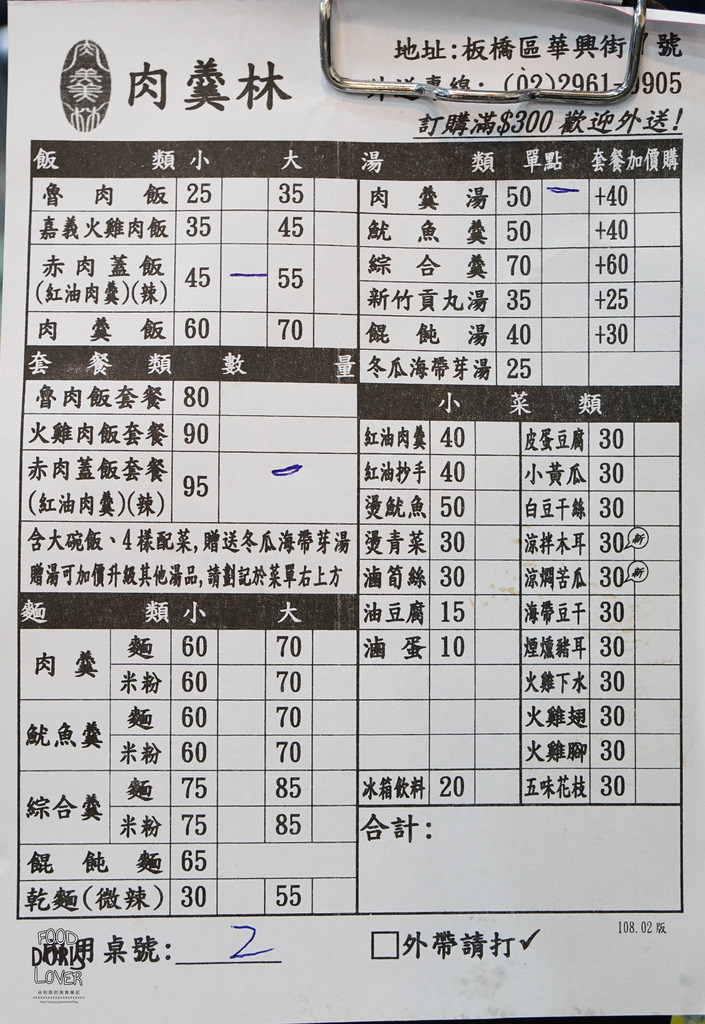 肉羹林
肉羹林
地址:板橋區華興街 號
(02)2961- 905
訂購滿$300歡迎外送!
飯 類 小 大
魯肉飯 25 35
嘉義火雞肉飯 35 45
赤肉蓋飯 45 一 55
(紅油肉羹)(辣)
肉羹飯 60 70
套餐類 數 量
魯肉飯套餐 80
火雞肉飯套餐 90
赤肉蓋飯套餐 95 一
(紅油肉羹)(辣)
含大碗飯、4樣配菜,贈送冬瓜海帶芽湯
贈湯可加價升級其他湯品,請劃記於菜單右上方
麵 類 小 大
肉羹 麵 60 70
米粉 60 70
魷魚羹 麵 60 70
米粉 60 70
綜合羹 麵 75 85
米粉 75 85
餛飩麵 65
乾麵(微辣) 30 55
湯 類 單點 套餐加價購
肉羹湯 50 一 +40
魷魚羹 50 +40
綜合羹 70 +60
新竹貢丸湯 35 +25
餛飩湯 40 +30
冬瓜海帶芽湯 25
小菜類
紅油肉羹 40 皮蛋豆腐 30
紅油抄手 40 小黃瓜 30
燙魷魚 50 白豆干絲 30
燙青菜 30 涼拌木耳 30 新
滷筍絲 30 涼燜苦瓜 30 新
油豆腐 15 海帶豆干 30
滷蛋 10 煙燻豬耳 30
火雞下水 30
火雞翅 30
火雞腳 30
冰箱飲料 20 五味花枝 30
合計:
108.02版
用桌號: 2
□外帶請打✓
FOOD
DORIS
LOVER